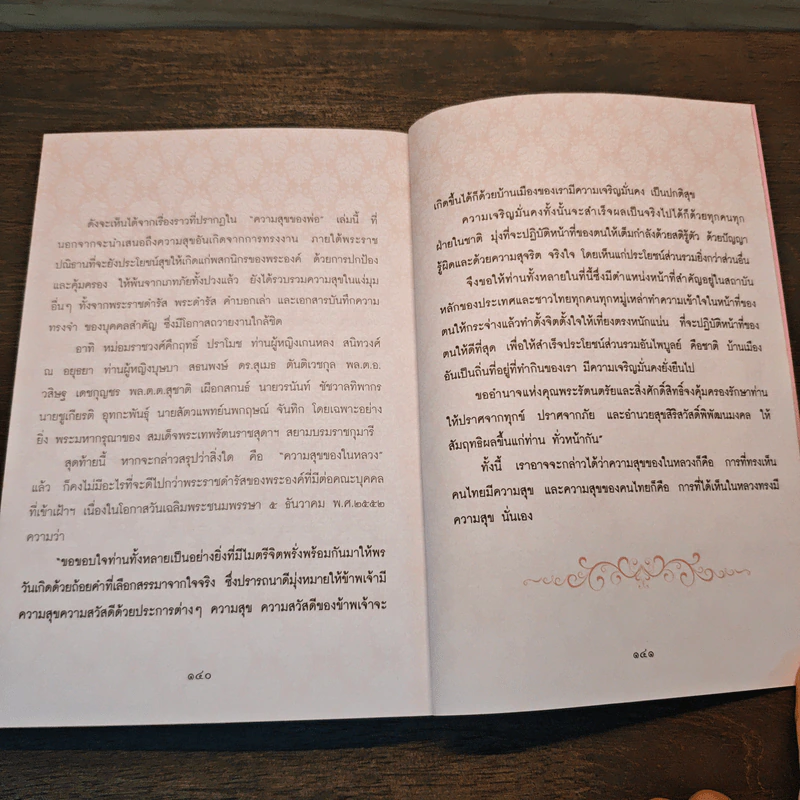 ดังจะเห็นได้จากเรื่องราวที่ปรากฏใน "ความสุขของพ่อ" เล่มนี้ ที่
นอกจากจะนำเสนอถึงความสุขอันเกิดจากการทรงงาน ภายใต้พระราช
ปณิธานที่จะยังประโยชน์สุขให้เกิดแก่พสกนิกรของพระองค์ ด้วยการปกป้อง
และคุ้มครอง ให้พ้นจากเภทภัยทั้งปวงแล้ว ยังได้รวบรวมความสุขในแง่มุม
อื่นๆ ทั้งจากพระราชดำรัส พระดำรัส คำบอกเล่า และเอกสารบันทึกความ
ทรงจำ ของบุคคลสำคัญ ซึ่งมีโอกาสถวายงานใกล้ชิด
อาทิ หม่อมราชวงศ์คึกฤทธิ์ ปราโมช ท่านผู้หญิงเกนหลง สนิทวงศ์
ณ อยุธยา ท่านผู้หญิงบุษบา สธนพงษ์ ดร.สุเมธ ตันติเวชกุล พล.ต.อ.
วสิษฐ เดชกุญชร พล.ต.ต.สุชาติ เผือกสกนธ์ นายวรนันท์ ชัชวาลทิพากร
นายชูเกียรติ อุทกะพันธุ์ นายสัตวแพทย์นพกฤษณ์ จันทิก โดยเฉพาะอย่าง
ยิ่ง พระมหากรุณาของ สมเด็จพระเทพรัตนราชสุดาฯ สยามบรมราชกุมารี
สุดท้ายนี้ หากจะกล่าวสรุปว่าสิ่งใด คือ "ความสุขของในหลวง"
แล้ว ก็คงไม่มีอะไรที่จะดีไปกว่าพระราชดำรัสของพระองค์ที่มีต่อคณะบุคคล
ที่เข้าเฝ้าฯ เนื่องในโอกาสวันเฉลิมพระชนมพรรษา ๕ ธันวาคม พ.ศ.๒๕๕๒
ความว่า
"ขอขอบใจท่านทั้งหลายเป็นอย่างยิ่งที่มีไมตรีจิตพรั่งพร้อมกันมาให้พร
วันเกิดด้วยถ้อยคำที่เลือกสรรมาจากใจจริง ซึ่งปรารถนาดีมุ่งหมายให้ข้าพเจ้ามี
ความสุขความสวัสดีด้วยประการต่างๆ ความสุข ความสวัสดีของข้าพเจ้าจะ
๑๔๐
เกิดขึ้นได้ก็ด้วยบ้านเมืองของเรามีความเจริญมั่นคง เป็นปกติสุข
ความเจริญมั่นคงทั้งนั้นจะสำเร็จผลเป็นจริงไปได้ก็ด้วยทุกคนทุก
ฝ่ายในชาติ มุ่งที่จะปฏิบัติหน้าที่ของตนให้เต็มกำลังด้วยสติรู้ตัว ด้วยปัญญา
รู้ผิดและด้วยความสุจริต จริงใจ โดยเห็นแก่ประโยชน์ส่วนรวมยิ่งกว่าส่วนอื่น
จึงขอให้ท่านทั้งหลายในที่นี้ซึ่งมีตำแหน่งหน้าที่สำคัญอยู่ในสถาบัน
หลักของประเทศและชาวไทยทุกคนทุกหมู่เหล่าทำความเข้าใจในหน้าที่ของ
ตนให้กระจ่างแล้วทำตั้งจิตตั้งใจให้เที่ยงตรงหนักแน่น ที่จะปฏิบัติหน้าที่ของ
ตนให้ดีที่สุด เพื่อให้สำเร็จประโยชน์ส่วนรวมอันไพบูลย์ คือชาติ บ้านเมือง
อันเป็นถิ่นที่อยู่ที่ทำกินของเรา มีความเจริญมั่นคงยั่งยืนไป
ขออำนาจแห่งคุณพระรัตนตรัยและสิ่งศักดิ์สิทธิ์จงคุ้มครองรักษาท่าน
ให้ปราศจากทุกข์ ปราศจากภัย และอำนวยสุขสิริสวัสดิ์พิพัฒนมงคล ให้
สัมฤทธิผลขึ้นแก่ท่าน ทั่วหน้ากัน"
ทั้งนี้ เราอาจจะกล่าวได้ว่าความสุขของในหลวงก็คือ การที่ทรงเห็น
คนไทยมีความสุข และความสุขของคนไทยก็คือ การที่ได้เห็นในหลวงทรงมี
ความสุข นั่นเอง
๑๔๑